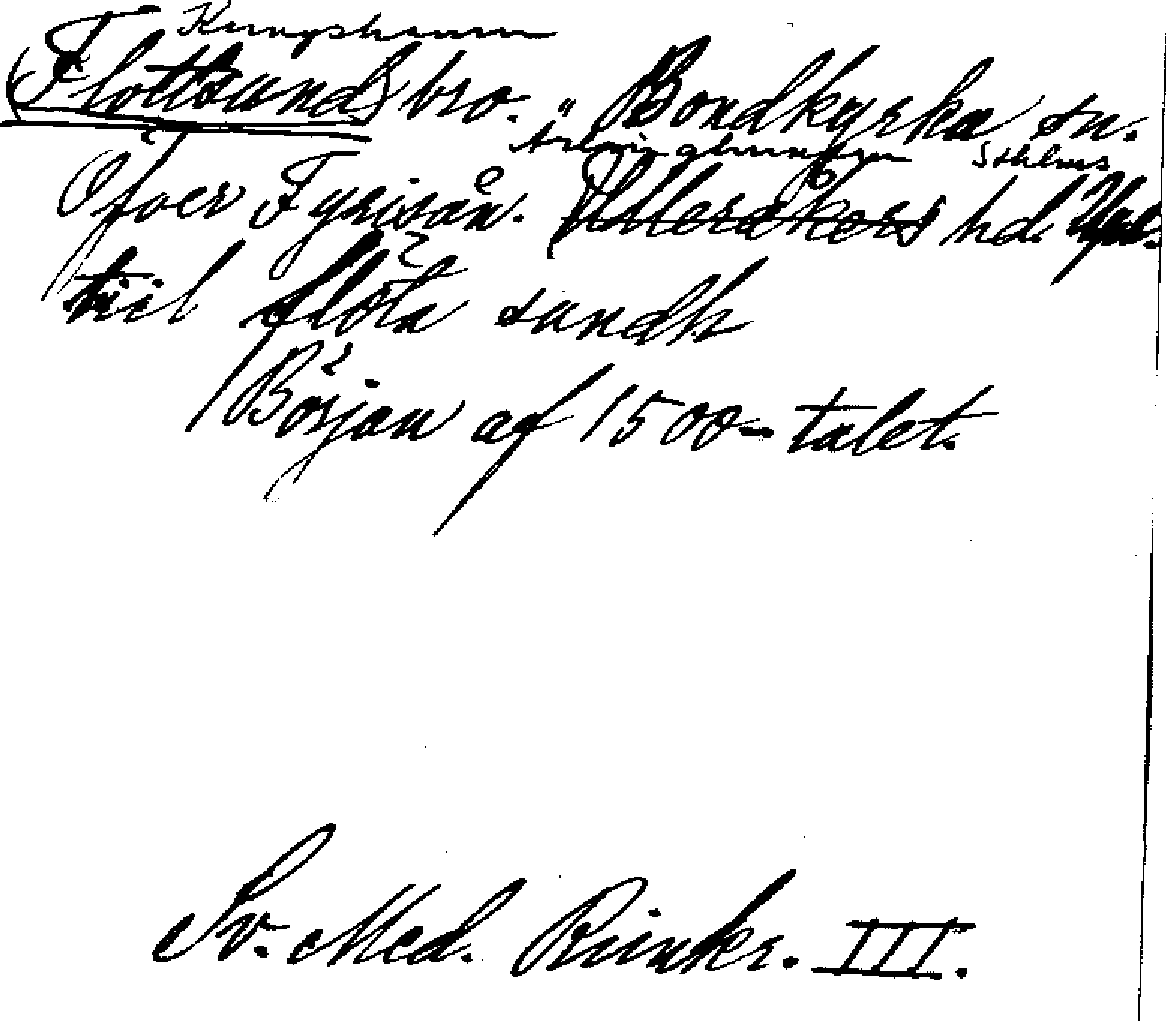 Kungshamn
(Flottsund) bro. Bondkyrka sn.
Ärlinghundra Sthlms
Öfver Fyrisån. Ulleråkers hd. Upl.
tiil flöta sundh
Början af 1500-talet.
Sv. Med. Rimkr. III.